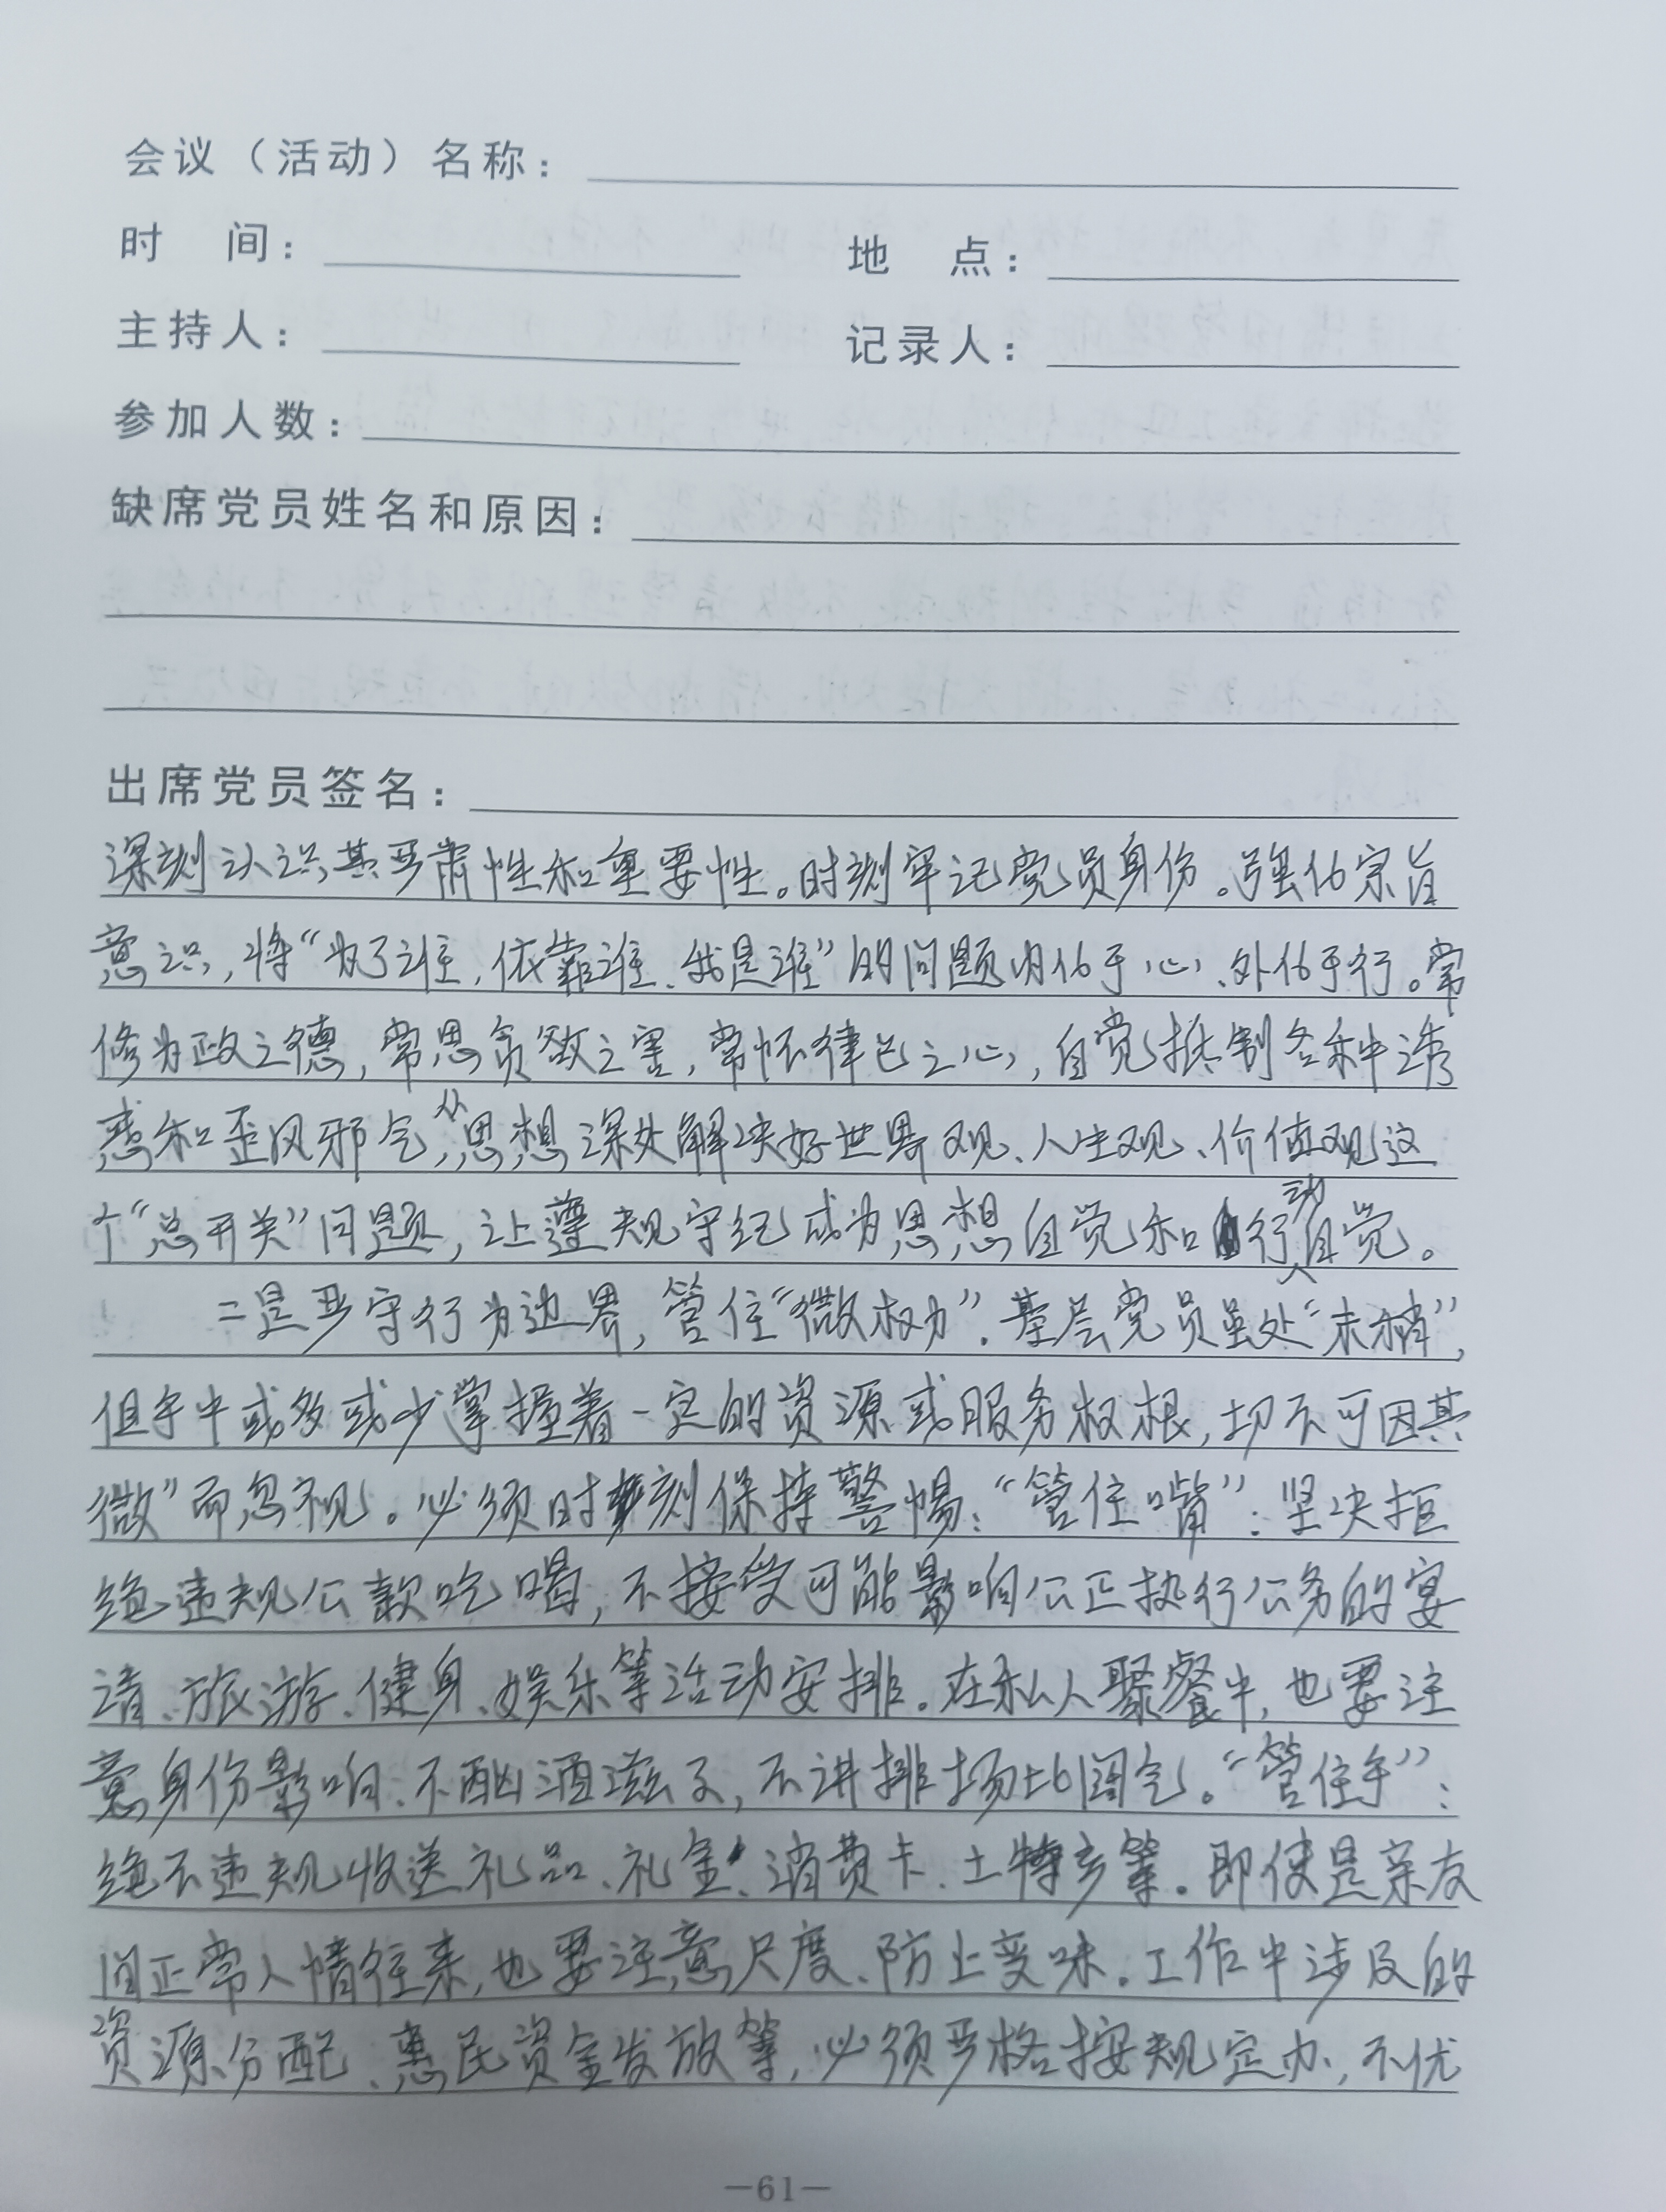 会议（活动）名称：
时 间： 地 点：
主持人： 记录人：
参加人数：
缺席党员姓名和原因：
出席党员签名：
深刻认识其严肃性和重要性。时刻牢记党员身份。强化宗旨
意识，将“为了谁，依靠谁、我是谁”的问题内化于心、外化于行。常
修为政之德，常思贪欲之害，常怀律己之心，自觉抵制各种诱
惑和歪风邪气，从思想深处解决好世界观、人生观、价值观这
个“总开关”问题，让遵规守纪成为思想自觉和行动自觉。
二是严守行为边界，管住“微权力”。基层党员虽处“末梢”，
但手中或多或少掌握着一定的资源或服务权根，切不可因其
微”而忽视。必须时刻保持警惕：“管住嘴”：坚决拒
绝违规公款吃喝，不接受可能影响公正执行公务的宴
请、旅游、健身、娱乐等活动安排。在私人聚餐中，也要注
意身份影响、不酗酒滋事，不讲排场比阔气。“管住手”：
绝不违规收送礼品、礼金、消费卡、土特产等。即使是亲友
间正常人情往来，也要注意尺度、防止变味。工作中涉及的
资源分配、惠民资金发放等，必须严格按规定办，不优
—61—